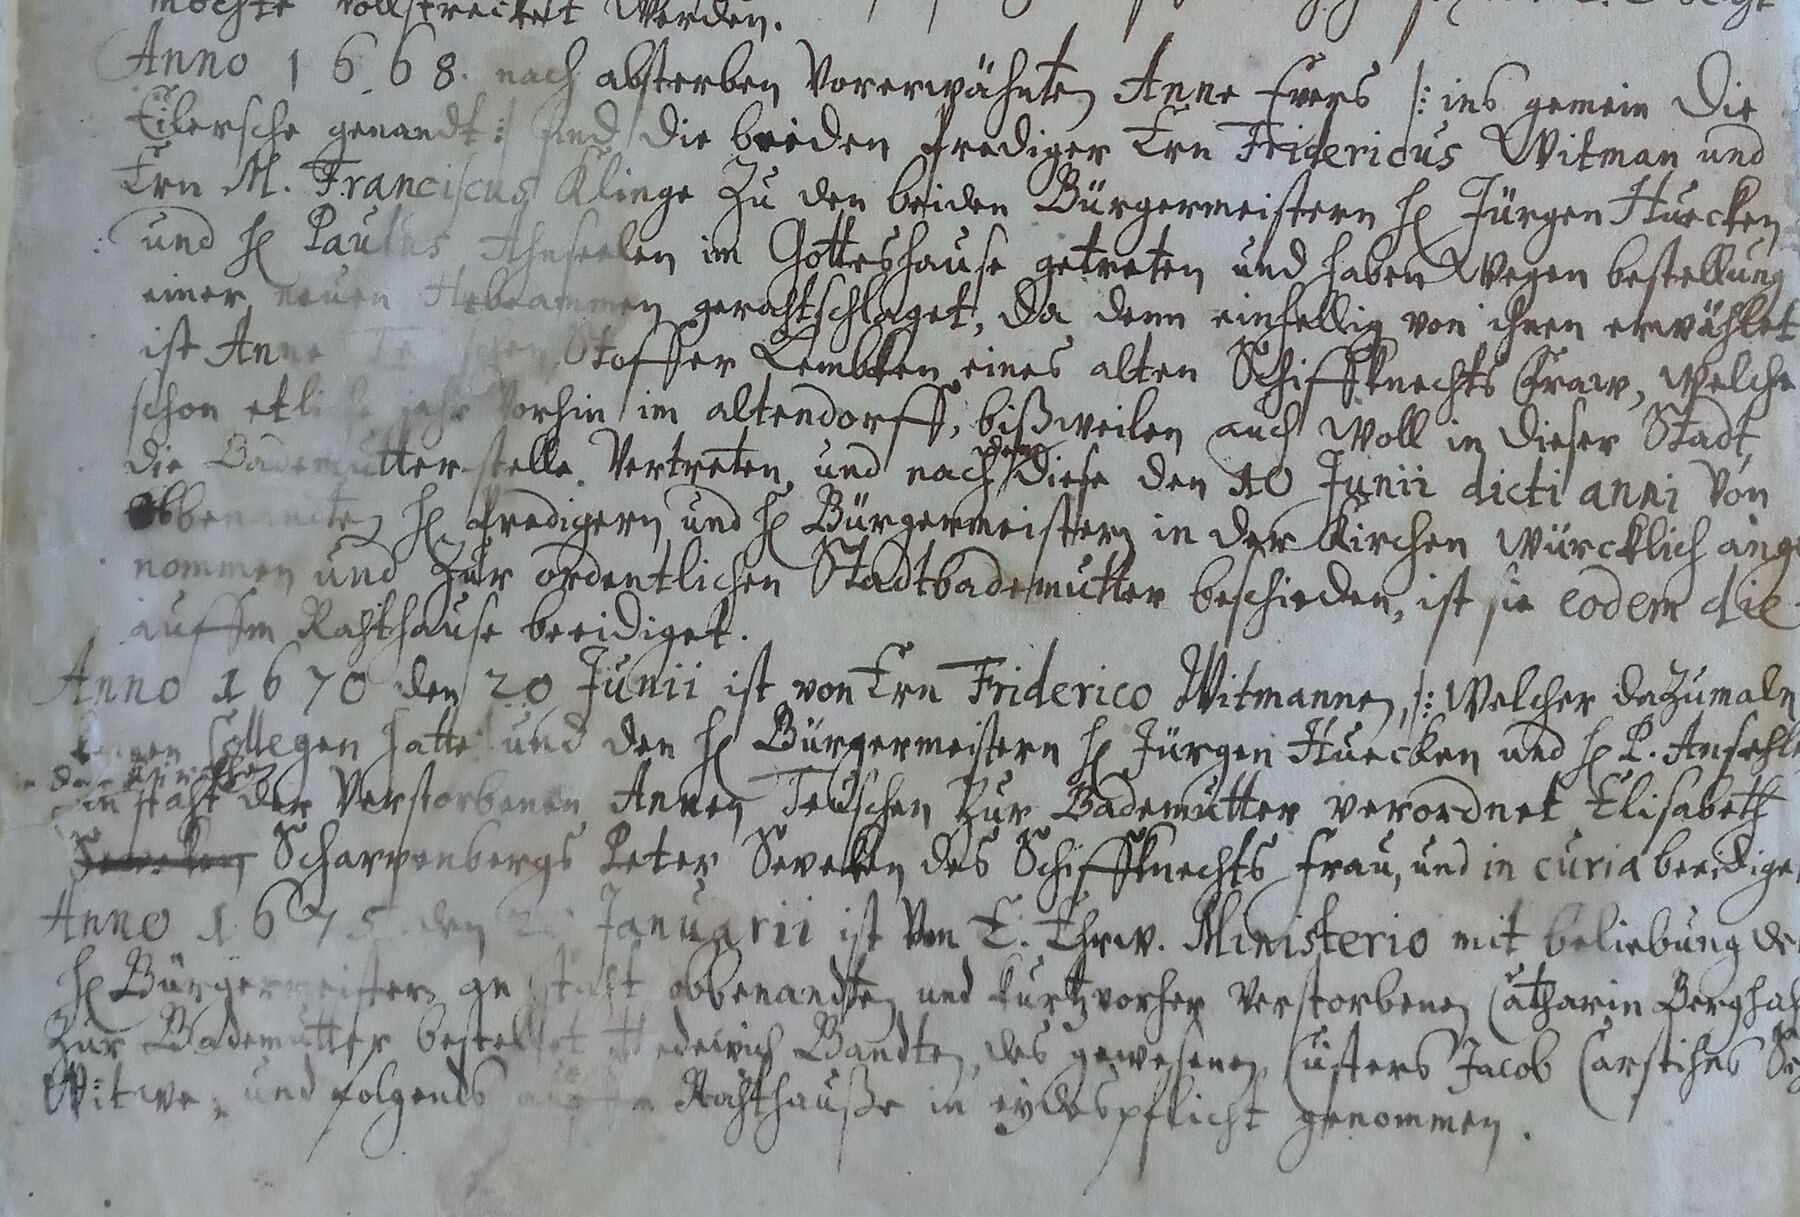 möchte vollstrecket werden.
Anno 1668. nach absterben Vorerwähnten Anne Evers /: ins gemein die
Eilersche genandt :/ sind die beiden Prediger Ern Fridericus Witman und
Ern M. Franciscus Klinge zu den beiden Bürgermeistern H Jürgen Huecken
und H Paulus Ahnseelen im Gotteshause getreten und haben wegen bestellung
einer neuen Hebeammen gerahtschlaget, da denn einhellig von ihnen erwählet
ist Anne Stoffer Lembken eines alten Schiffknechts Fraw, welche
schon etliche jahr vorhin im altendorff, bißweilen auch woll in dieser Stadt,
die Bademutterstelle Vertreten, und nach dem diese den 10 Junii dicti anni von
obbenandten H Predigern und H Bürgermeistern in der Kirchen würcklich ange
nommen und zur ordentlichen Stadtbademutter beschieden, ist sie eodem die
auffm Rahthause beeidiget.
Anno 1670 den 20 Junii ist von Ern Friderico Witmannen, /: welcher dazumaln
keinen Collegen hatte und den H Bürgermeistern H Jürgen Huecken und H P. Ansehle
in der Kirchen
in staht der Verstorbenen Annen Teuschen zur Bademutter verordnet Elisabeth
Scharpenbergs Peter Seveken des Schiffknechts frau, und in curia beeidiget
Anno 1675 den Januarii ist Von E. Ehrw. Ministerio mit beliebung der
H Bürgermeister an staht obbenandten und kurtz vorher Verstorbenen Catharin Berghah
zur Bademutter bestellet Hedewich Bandten, des gewesenen Cüsters Jacob Carstihns
Witwe, und folgends auffm Rahthauße in eydespflicht genommen.